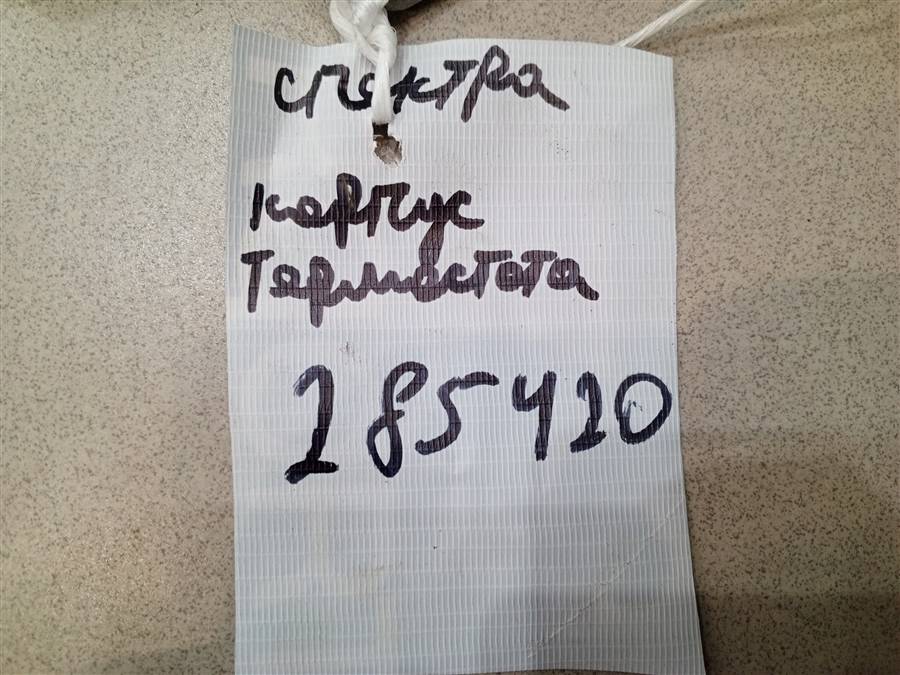 спектра
корпус
Термостата
185410